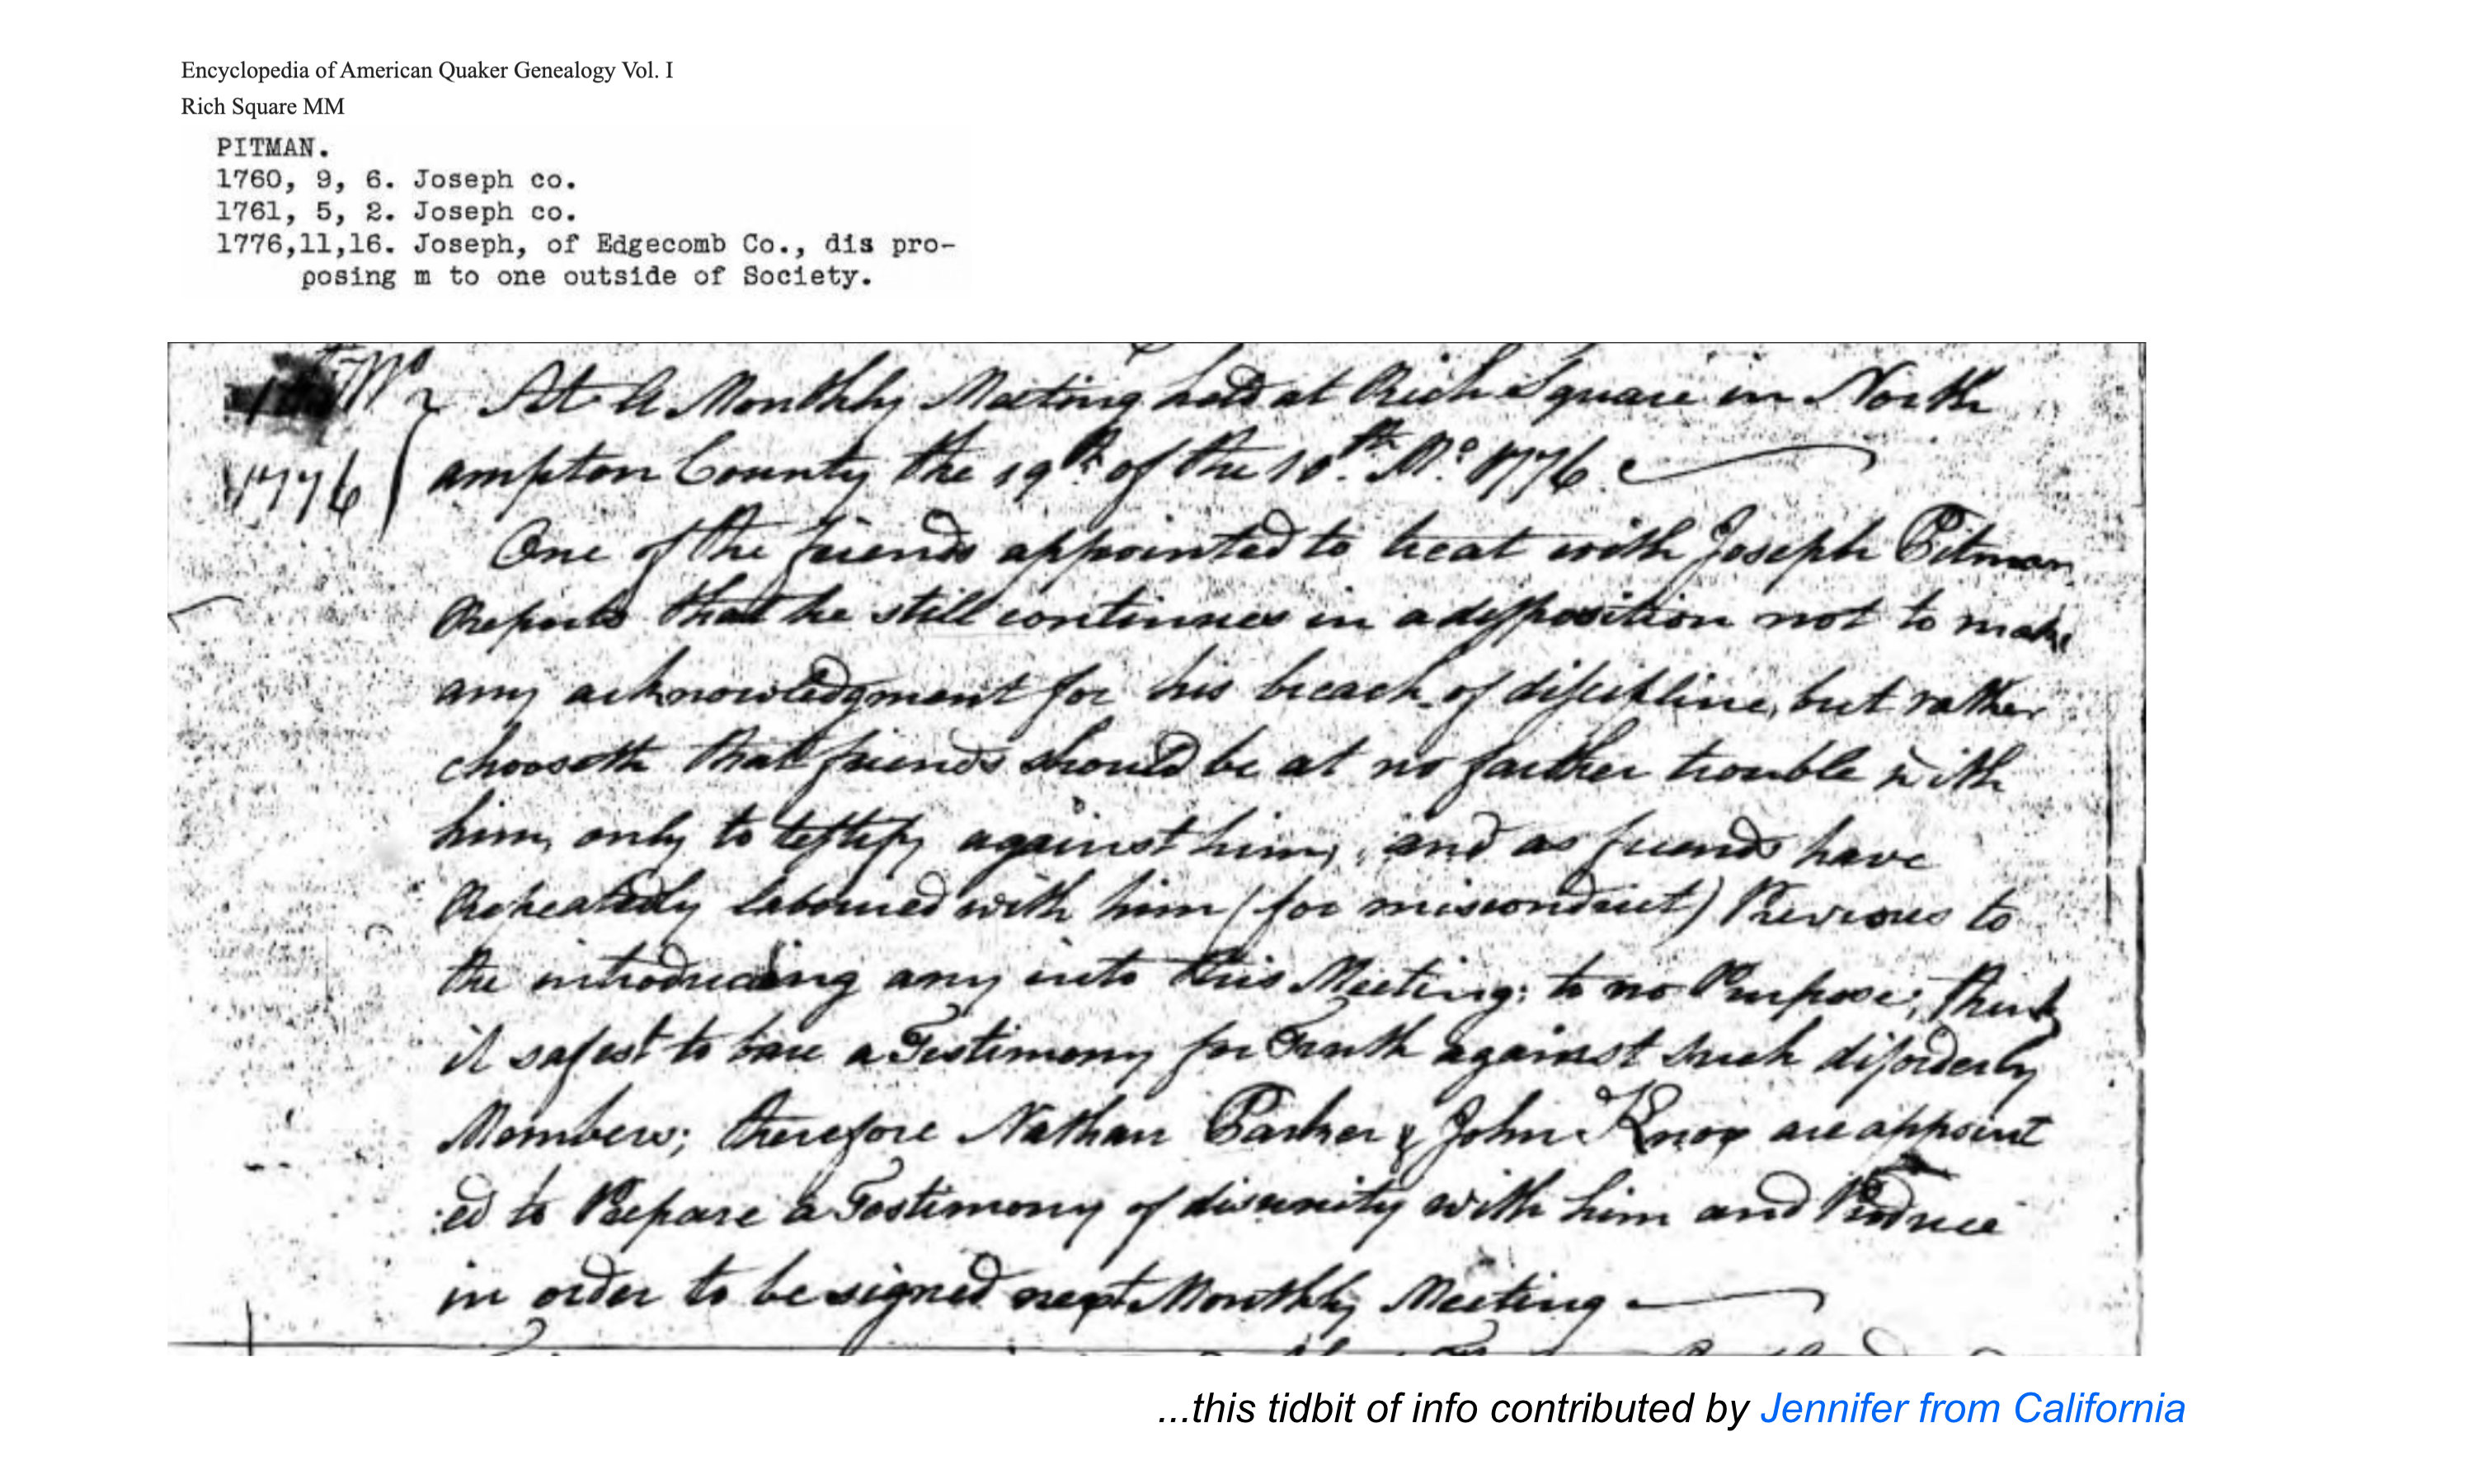 Encyclopedia of American Quaker Genealogy Vol. I
Rich Square MM
PITMAN.
1760, 9, 6. Joseph co.
1761, 5, 2. Joseph co.
1776,11,16. Joseph, of Edgecomb Co., dis pro-
posing m to one outside of Society.
Mo At A Monthly Meeting held at Rich Square in North
1776 ampton County the 19th. of the 10th. Mo. 1776.
One of the friends appointed to treat with Joseph Pitman
Reports that he still continues in a disposition not to make
any acknowledgment for his breach of discipline, but rather
chooseth that friends should be at no farther trouble with
him, only to testify against him; and as friends have
Repeatedly laboured with him (for misconduct) Previous to
the introducing any into this Meeting; to no Purpose; think
it safest to bare a Testimony for Truth against such disorderly
Members; therefore Nathan Parker & John Knox are appoint
:ed to Prepare a Testimony of disunity with him and Produce
in order to be signed next Monthly Meeting
...this tidbit of info contributed by Jennifer from California